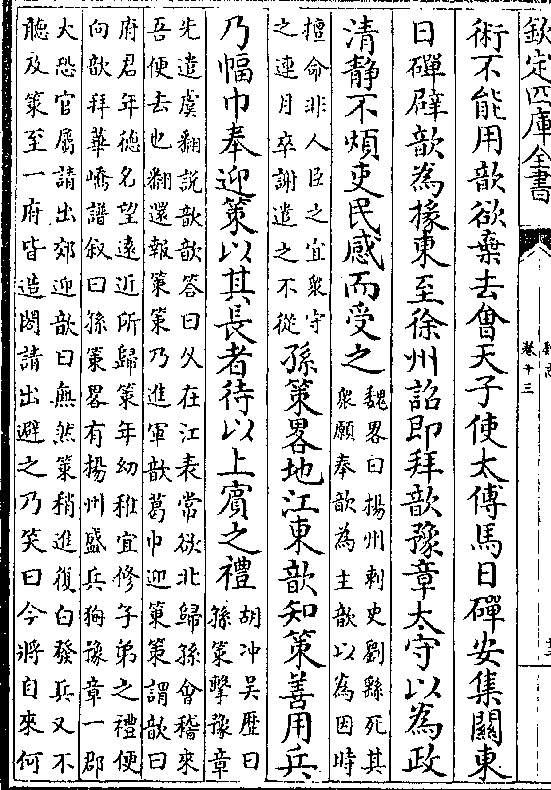 欽定四庫全書
卷十三
術不能用歆欲棄去會天子使太傅馬日磾安集關東
日磾辟歆為掾東至徐州詔即拜歆豫章太守以為政
清静不煩吏民感而受之
魏畧曰揚州刺史劉繇死其
衆願奉歆為主歆以為因時
擅命非人臣之宜衆守
之連月卒謝遣之不從
孫策畧地江東歆知策善用兵
乃幅巾奉迎策以其長者待以上賓之禮
胡冲吴歴曰
孫策擊豫章
先遣虞翻説歆歆答曰久在江表常欲北歸孫會稽來
吾便去也翻還報策策乃進軍歆葛巾迎策策謂歆曰
府君年德名望遠近所歸策年幼稚宜修子弟之禮便
向歆拜華嶠譜叙曰孫策畧有揚州盛兵狥豫章一郡
大恐官屬請出郊迎歆曰無然策稍進復白發兵又不
聽及策至一府皆造閤請出避之乃笑曰今將自來何